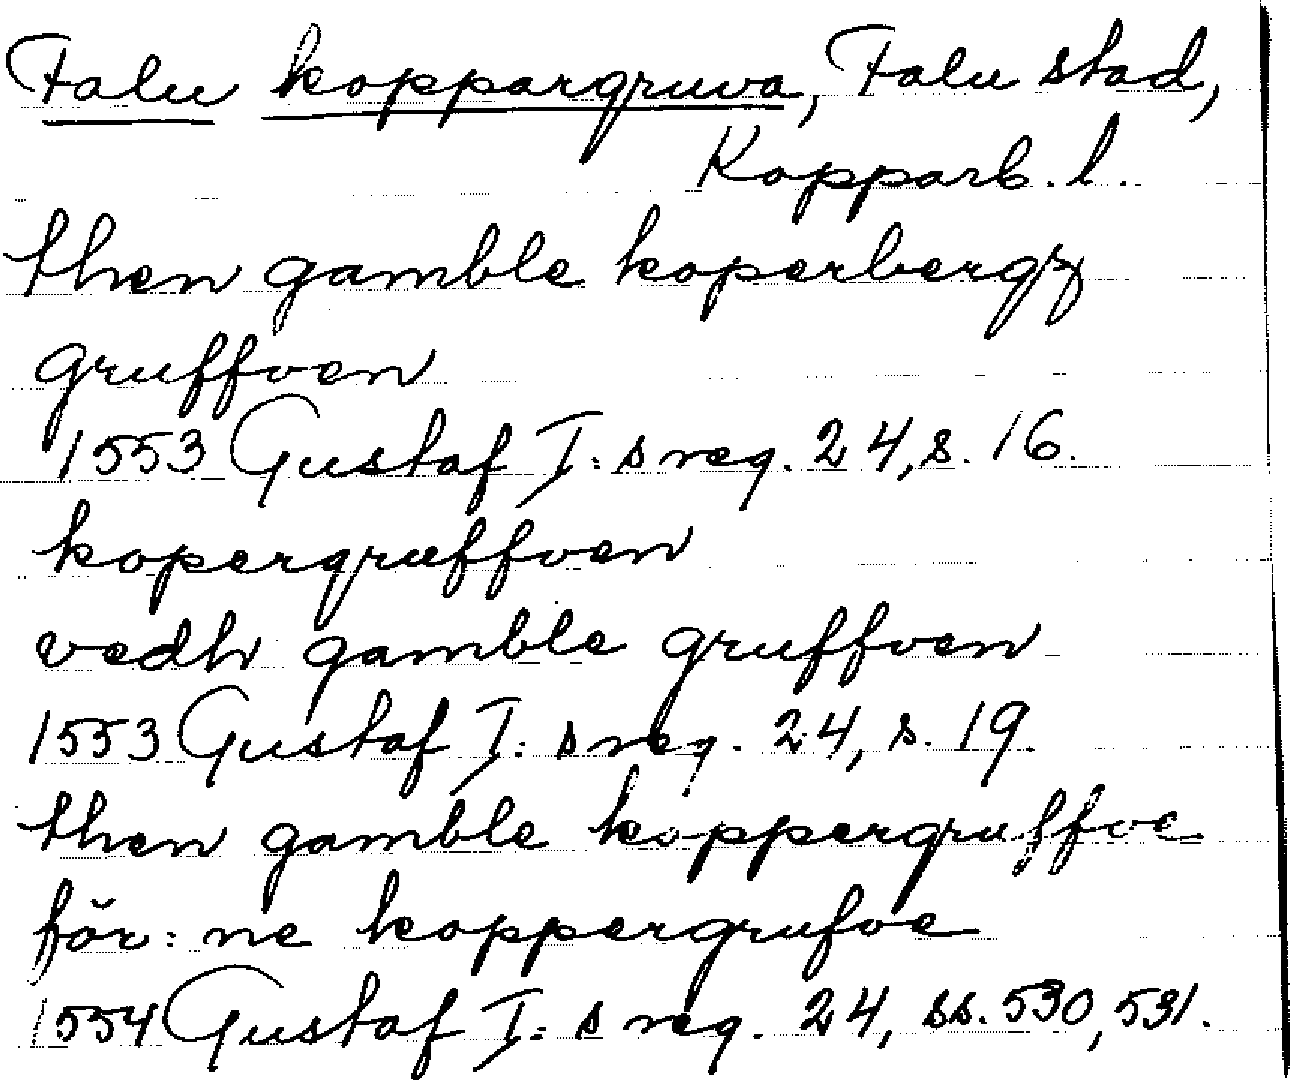 Falu koppargruva, Falu stad,
Kopparb. l.
then gamble koperbergz
gruffven
1553 Gustaf I:s reg. 24, s. 16.
kopergruffven
vedh gamble gruffven
1553 Gustaf I:s reg. 24, s. 19.
then gamble koppergruffve
för:ne koppergrufve
1554 Gustaf I:s reg. 24, ss. 530, 531.